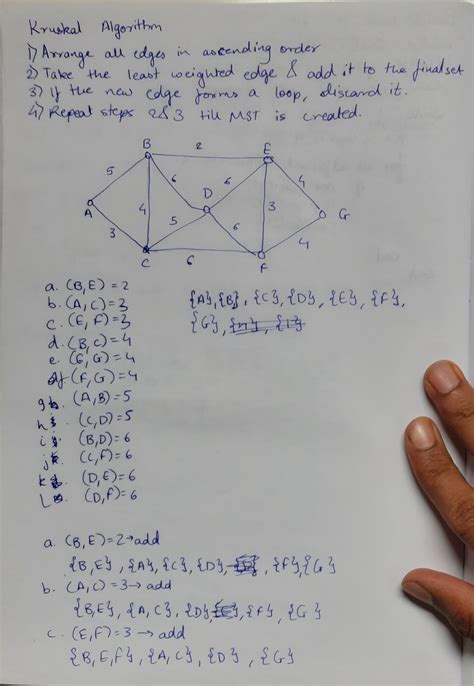 Kruskal Algorithm
1) Arrange all edges in ascending order
2) Take the least weighted edge & add it to the final set
3) If the new edge forms a loop, discard it.
4) Repeat steps 2&3 till MST is created.
B 2 E
5 6 6 4
A 4 D 3 G
3 5 6 4
C 6 F
a. (B,E) = 2
b. (A,C) = 3
c. (E,F) = 3
d. (B,C) = 4
e. (E,G) = 4
f. (F,G) = 4
g. (A,B) = 5
h. (C,D) = 5
i. (B,D) = 6
j. (C,F) = 6
k. (D,E) = 6
l. (D,F) = 6
{A},{B},{C},{D},{E},{F},
{G},
a. (B,E) = 2 → add
{B,E}, {A},{C},{D}, {F},{G}
b. (A,C) = 3 → add
{B,E}, {A,C}, {D}, {F}, {G}
c. (E,F) = 3 → add
{B,E,F}, {A,C}, {D}, {G}